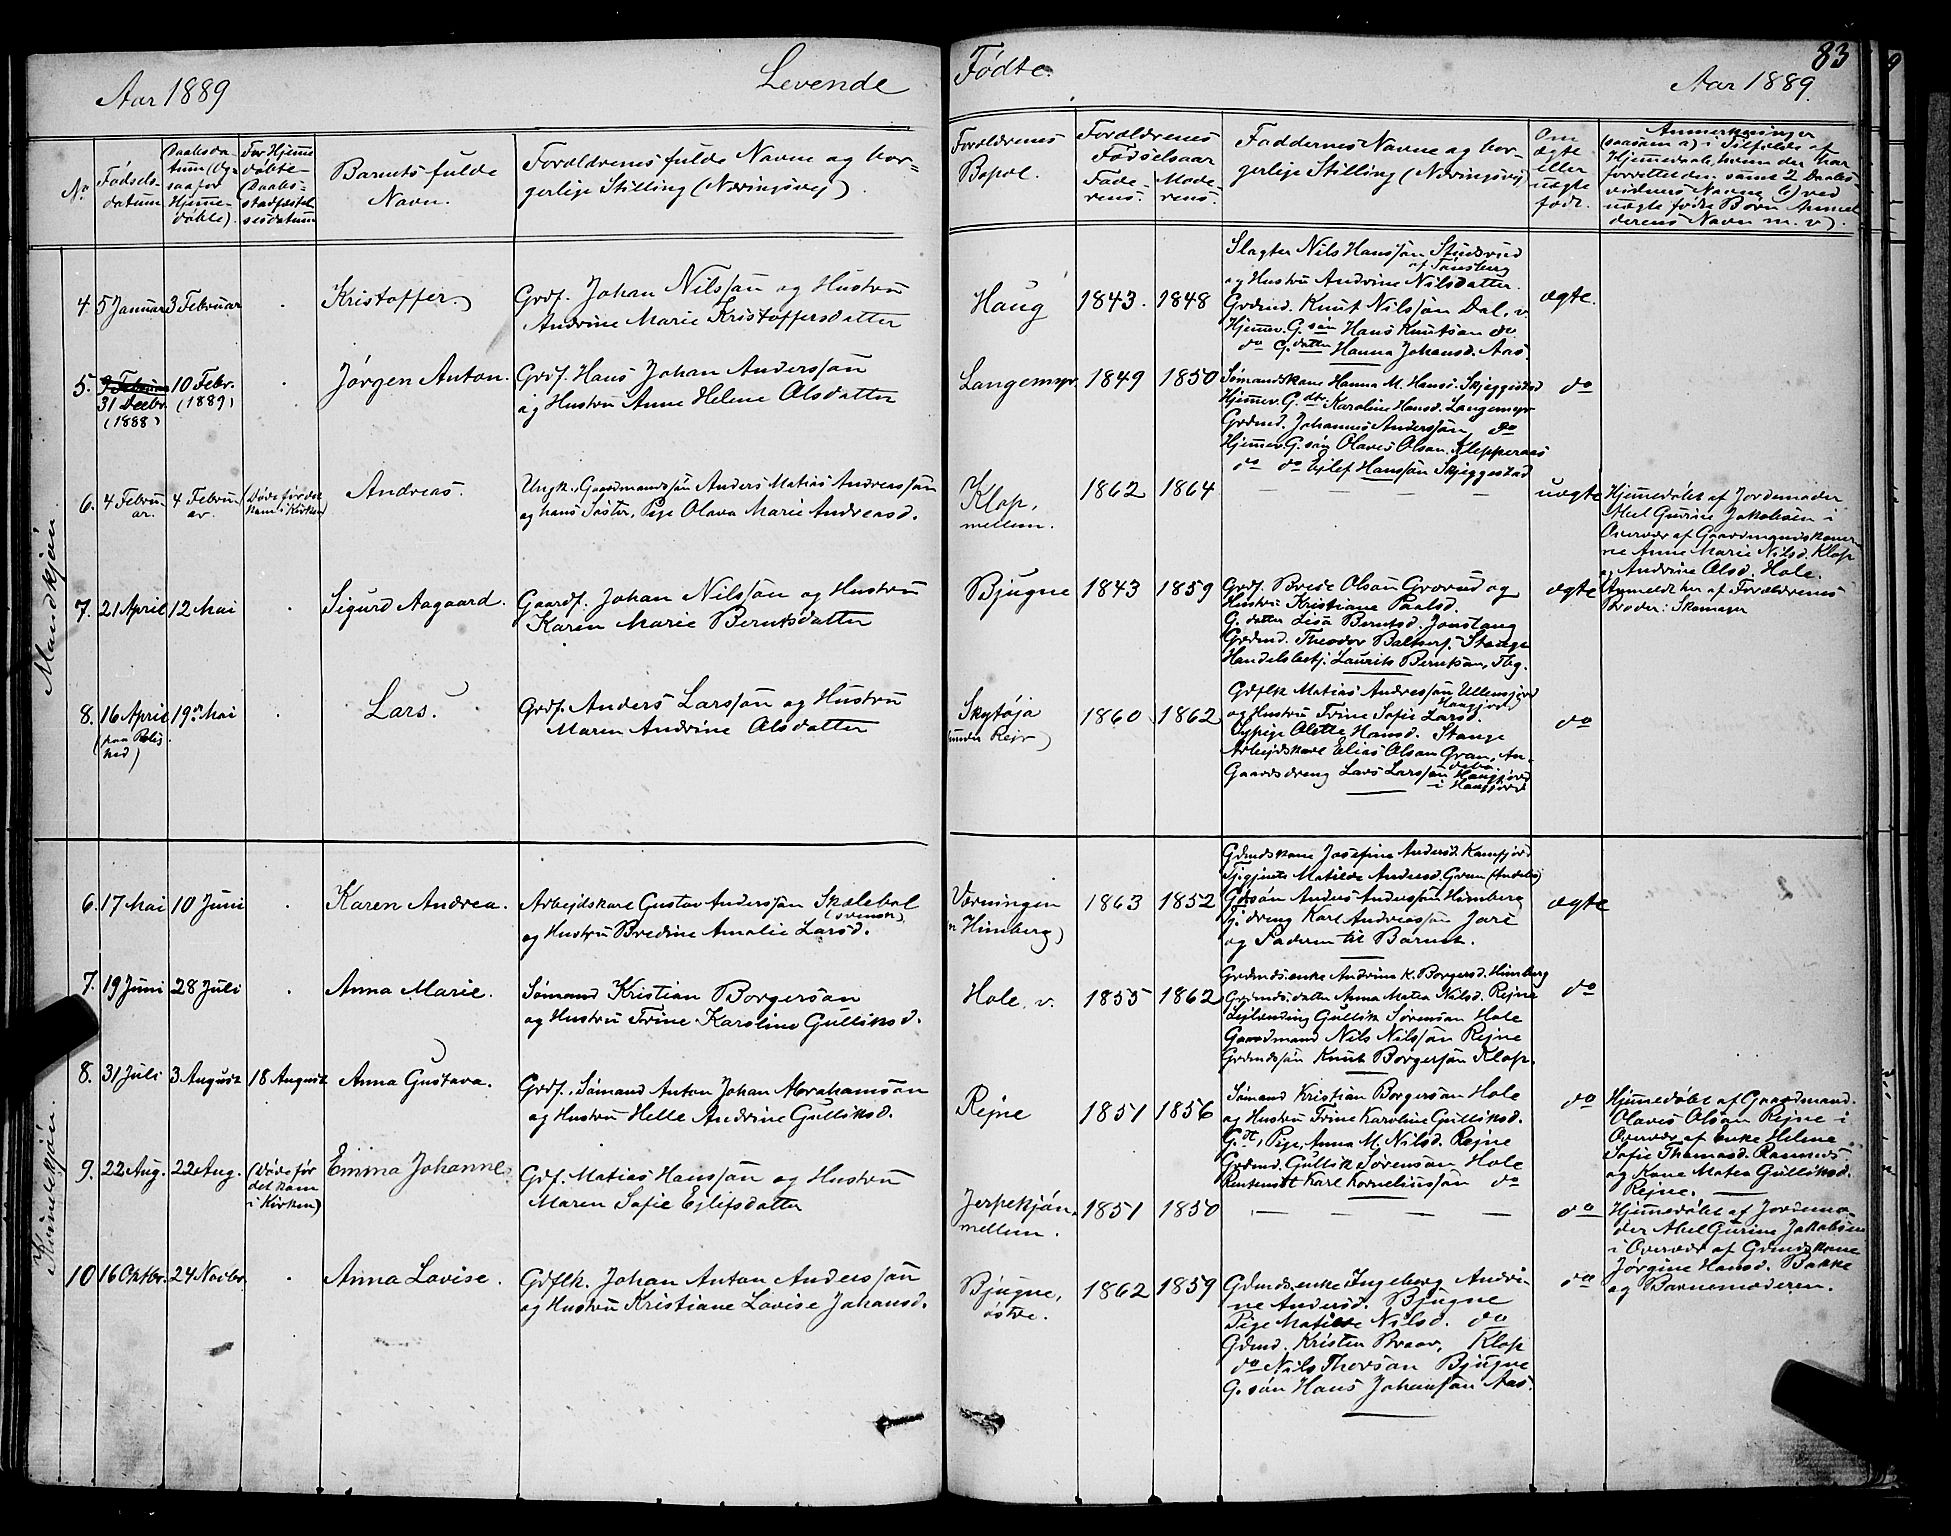 Aar 1889
Levende
Fødte.
83
Aar 1889.
No
Fødsels-
datum
Daabsda-
tum (Og-
saa for
Hjemme-
døbte).
For Hjemme
døbte
Daabs-
stadfæstel-
sesdatum
Barnets fulde
Navn.
Forældrenes fulde Navne og bor-
gerlige Stilling (Næringsvej).
Forældrenes
Bopæl.
Forældrenes
Fødselsaar
Fade-
rens.
Mode-
rens.
Faddernes Navne og bor-
gerlige Stilling (Næringsvej)
Om
ægte
eller
uægte
født.
Anmerkninger
(saasom a) i Tilfælde af
Hjemmedaab, hvem der har
forrettet den, samt 2 Daabs-
vidners Navne b) ved
uægte fødte Børn Anmel-
derens Navn m. v.)
Mandkjøn
4. 5 Januar 3 Februar
Kristoffer.
Grdf. Johan Nilssøn og Hustru
Andrine Marie Kristoffersdatter
Haug
1843. 1848
Slagter Nils Hanssøn Studsrud
af Tønsberg
og Hustru Andrine Nilsdatter.
Grdmd. Knut Nilssøn Dal, v.
Hjemmev. G. søn Hans Knutsøn do
do G. datter Hanna Johansd. Aas.
ægte.
5. 9 Februar 10 Febr.
31 Decbr. (1889)
(1888)
Jørgen Anton.
Grdf. Hans Johan Anderssøn
og Hustru Anne Helene Olsdatter
Langemyr
1849 1850
Sømandskone Hanna M. Hansd. Skjeggestad
Hjemmev. G. dtr. Karoline Hansd. Langemyr
Grdmd. Johannes Anderssøn do
Hjemmev. G. søn Olaves Olsøn, Kleppenaas
do do Ejlef Hanssøn Skjeggestad
do
6. 4 Februar 4 Februar
(Døde før det
kom i Kirken)
Andreas.
Ungk. Gaardmandssøn Anders Matias Andreassøn
og hans Søster, Pige Olava Marie Andreasd.
Klop,
mellem.
1862 1864
— — — —
uægte
Hjemmedøbt af Jordemoder
Abel Gurine Jakobsen i
Overvær af Gaardmandskoner-
ne Anne Marie Nilsd. Klop
og Andrine Olsd. Hole.
Anmeldt her af Forældrenes
Broder i Skomager
7. 21 April 12 Mai
Sigurd Aagaard.
Gaardf. Johan Nilssøn og Hustru
Karen Marie Berntsdatter
Bjugne
1843 1859
Grdf. Brede Olsøn Gravrud og
Hustru Kristiane Paalsd.
G. datter Lisa Berntsd. Jonstang
Grdmd. Theodor Baltsers. Stange
Handelsbetj. Laurits Berntsøn, Tbg.
ægte
8. 16 April 19de Mai
(paa Rolighed)
Lars.
Grdf. Anders Larssøn og Hustru
Maren Andrine Olsdatter
Skytøja
(under Rejr)
1860 1862
Gdflk Matias Andreassøn Ullensjord
og Hustru Trine Sofie Larsd.
Pige Olette Hansd. Stange
Arbejdskarl Elias Olsøn Gran, An-
debu.
Gaardsdreng Lars Larssøn
i Haugjord
do
Kvindekjøn.
6. 17 Mai 10 Juni
Karen Andrea.
Arbejdskarl Gustav Anderssøn Skælebol
(svensk)
og Hustru Bredine Amalie Larsd.
Værningen
(u Himberg)
1863 1852
Gdmdskone Josefine Andersd. Kamfjord
Tj.pige Matilde Andersd. Gran (Andebu)
G.søn Anders Anderssøn Himberg
Tj. dreng Karl Andreassøn Jare
og Faderen til Barnet.
ægte
7. 19 Juni 28 Juli
Anna Marie.
Sømand Kristian Borgersøn
og Hustru Trine Karoline Gulliksd.
Hole, v.
1855 1862
Grdmds.enke Andrine K. Borgersd. Himberg
Grdmds.datter Anna Matea Nilsd. Rejne
Lejlænding Gullik Sørensøn Hole
Gaardmand Nils Nilssøn Rejne
Grdmdssøn Knut Borgersøn Klop.
do
8. 31 Juli 3 August 18 August
Anna Gustava.
Grdf. Sømand Anton Johan Abrahamsøn
og Hustru Helle Andrine Gulliksd.
Rejne
1851 1856
Sømand Kristian Borgersøn Hole
og Hustru Trine Karoline Gulliksd.
G. dt, Pige Anna M. Nilsd. Rejne
Grdmd. Gullik Sørensøn Hole
Rentenist Karl Korneliussøn do
do
Hjemmedøbt af Gaardmand.
Olaves Olsøn Rejne i
Overvær af Enke Helene
Sofie Thomasd. Ramnes
og Kone Matea Gulliksd.
Rejne.
9. 22 Aug. 22 Aug.
(Døde før
det kom
i Kirken)
Emma Johanne
Gdf. Matias Hanssøn og Hustru
Maren Sofie Ejlifsdatter
Jerpekjøn,
mellem.
1851 1850
— — — —
do
Hjemmedøbt af Jordemo-
der Abel Gurine Jakobsen
i Overvær af Gdmdskone
Jørgine Hansd. Bakke
og Barnemoderen.
10 16 Oktbr. 24 Novbr.
Anna Lovise.
Gdflk. Johan Anton Anderssøn
og Hustru Kristiane Lovise Johansd.
Bjugne,
østre.
1862 1859
Gdmds.enke Ingeborg Andri-
ne Andersd. Bjugne
Pige Matilde Nilsd. do
Gdmd. Kristen Braar, Klop
do Nils Thorsøn Bjugne
G. søn Hans Johansøn Aas.
do